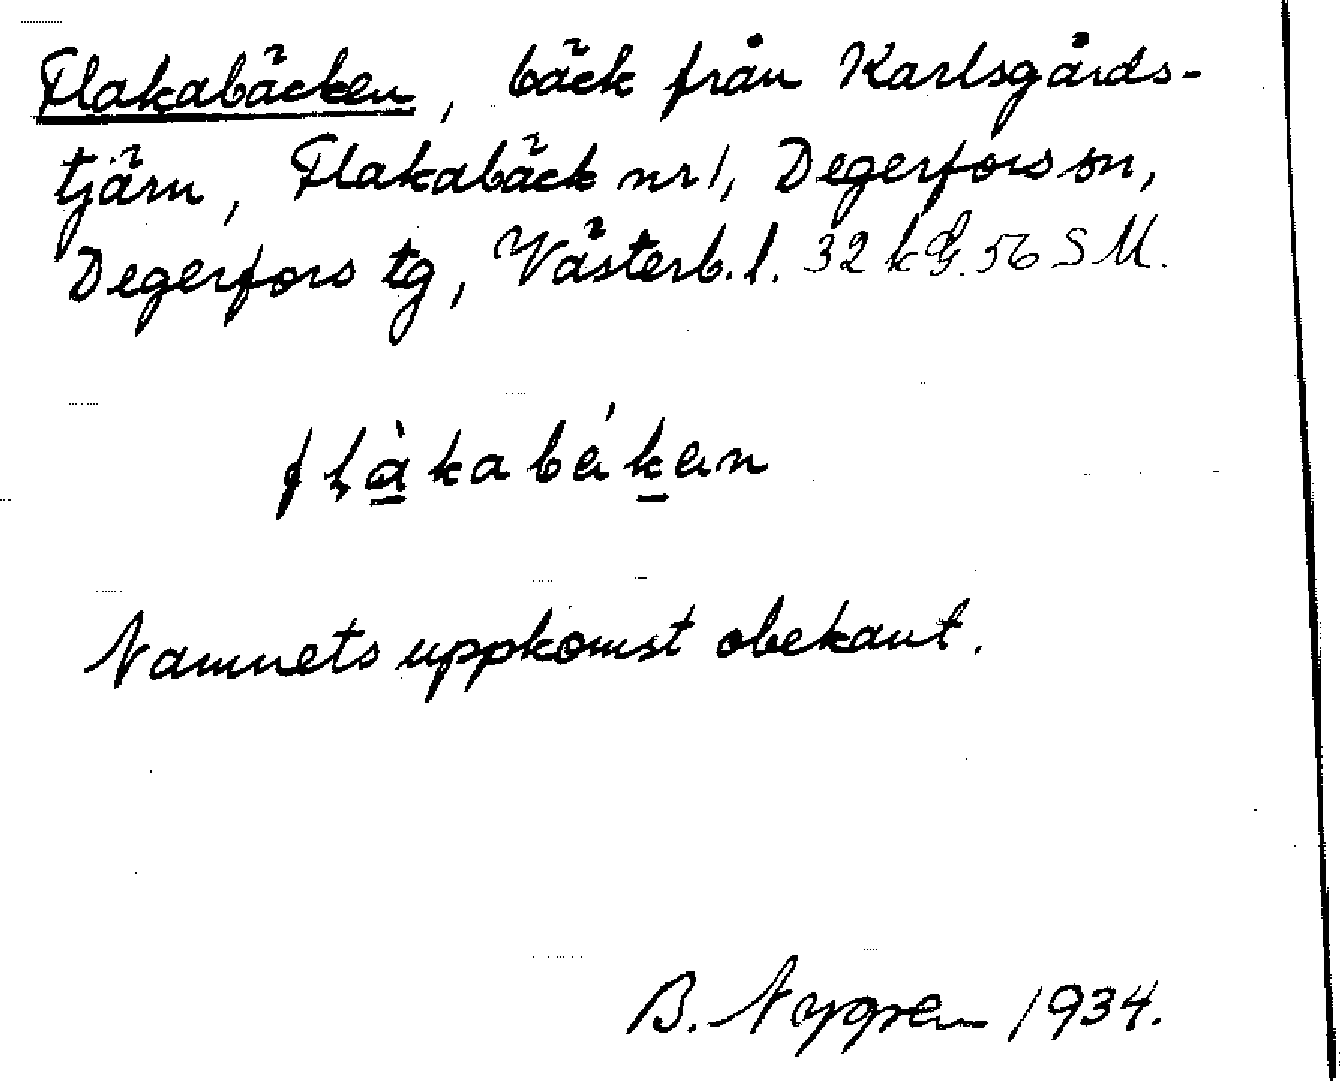 Flakabäcken, bäck från Karlsgårds-
tjärn, Flakabäck nr 1, Degerfors sn,
Degerfors tg, Västerb. l. 32 kG. 56 SM.
flàkabékan
Namnets uppkomst obekant.
B. Nygren 1934.